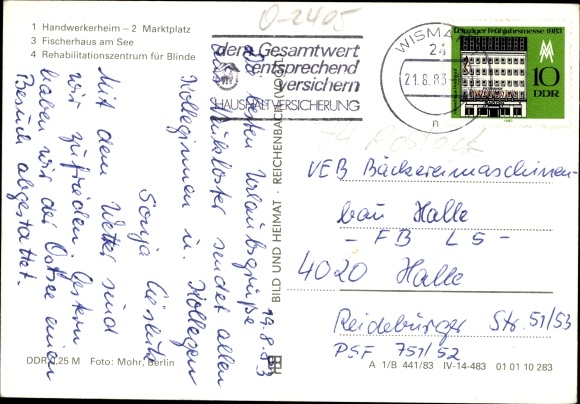 1 Handwerkerheim – 2 Marktplatz
3 Fischerhaus am See
4 Rehabilitationszentrum für Blinde
O-2405
dem Gesamtwert
entsprechend
versichern
HAUSHALTVERSICHERUNG
WISMAR
24
21.8.83
n
Leipziger Frühjahrsmesse 1983
10
DDR
1983
74 Rostock
19.8.83
Die besten Urlaubsgrüße
aus Neukloster sendet allen
Kolleginnen u. Kollegen
Sonja
Mit dem Wetter sind
wir zufrieden. Gestern
haben wir der Ostsee einen
Besuch abgestattet.
BILD UND HEIMAT · REICHENBACH (VOGTL)
VEB Bäckereimaschinen-
bau Halle
– FB LS –
4020 Halle
Reideburger Str. 51/53
PSF 751/52
DDR 0,25 M Foto: Mohr, Berlin
A 1/B 441/83 IV-14-483 01 01 10 283